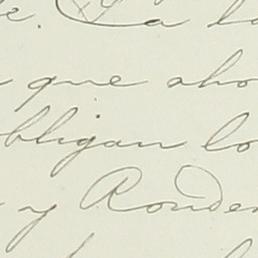 e. La
que aho
bligan lo
y Ronde